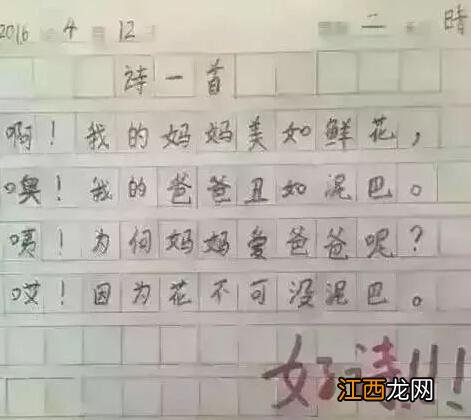 2016 4 12 二 晴
诗一首
啊！我的妈妈美如鲜花，
噢！我的爸爸丑如泥巴。
咦！为何妈妈爱爸爸呢？
哎！因为花不可没泥巴。
好诗!!!
江西龙网